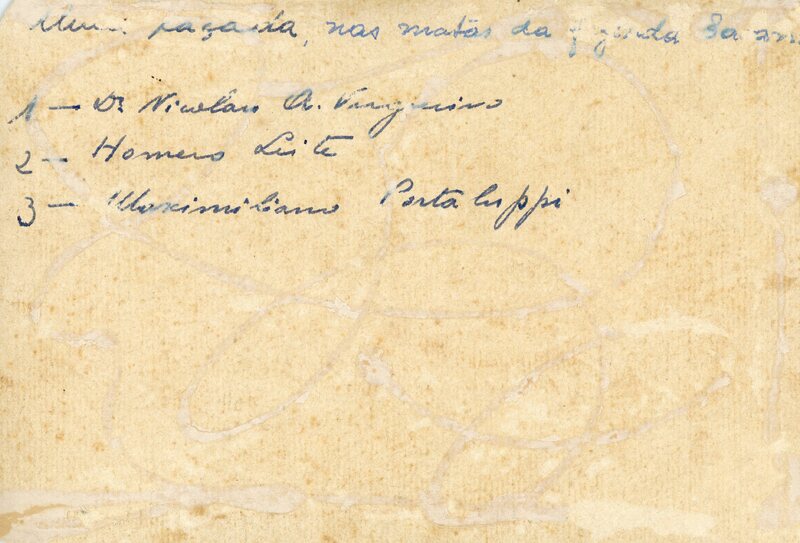 Numa caçada, nas matas da fazenda
1 — Dr. Nicolau A. Vergueiro
2 — Homero Leite
3 — Maximiliano Portaluppi